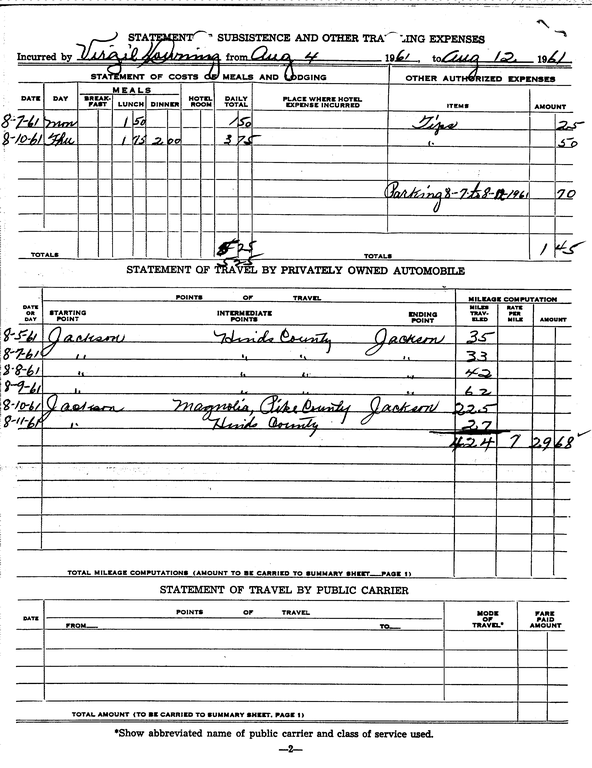 STATEMENT SUBSISTENCE AND OTHER TRA ING EXPENSES
Incurred by Virgil Downing from Aug 4 1961, to Aug 12, 1961
STATEMENT OF COSTS OF MEALS AND LODGING OTHER AUTHORIZED EXPENSES
DATE DAY MEALS BREAK-FAST LUNCH DINNER HOTEL ROOM DAILY TOTAL PLACE WHERE HOTEL EXPENSE INCURRED ITEMS AMOUNT
8-7-61 Mon 1 50 1 50 Tips 25
8-10-61 Thu 1 75 2 00 3 75 " 50
Parking 8-7 to 8-12-1961 70
5 25
TOTALS 5 25 TOTALS 1 45
STATEMENT OF TRAVEL BY PRIVATELY OWNED AUTOMOBILE
POINTS OF TRAVEL MILEAGE COMPUTATION
DATE OR DAY STARTING POINT INTERMEDIATE POINTS ENDING POINT MILES TRAV-ELED RATE PER MILE AMOUNT
8-5-61 Jackson Hinds County Jackson 35
8-7-61 " " " " 33
8-8-61 " " " " 42
8-9-61 " " " " 62
8-10-61 Jackson Magnolia, Pike County Jackson 225
8-11-61 " Hinds County 27
424 7 29 68
TOTAL MILEAGE COMPUTATIONS (AMOUNT TO BE CARRIED TO SUMMARY SHEET__PAGE 1)
STATEMENT OF TRAVEL BY PUBLIC CARRIER
DATE POINTS OF TRAVEL FROM__ TO__ MODE OF TRAVEL* FARE PAID AMOUNT
TOTAL AMOUNT (TO BE CARRIED TO SUMMARY SHEET, PAGE 1)
*Show abbreviated name of public carrier and class of service used.
—2—